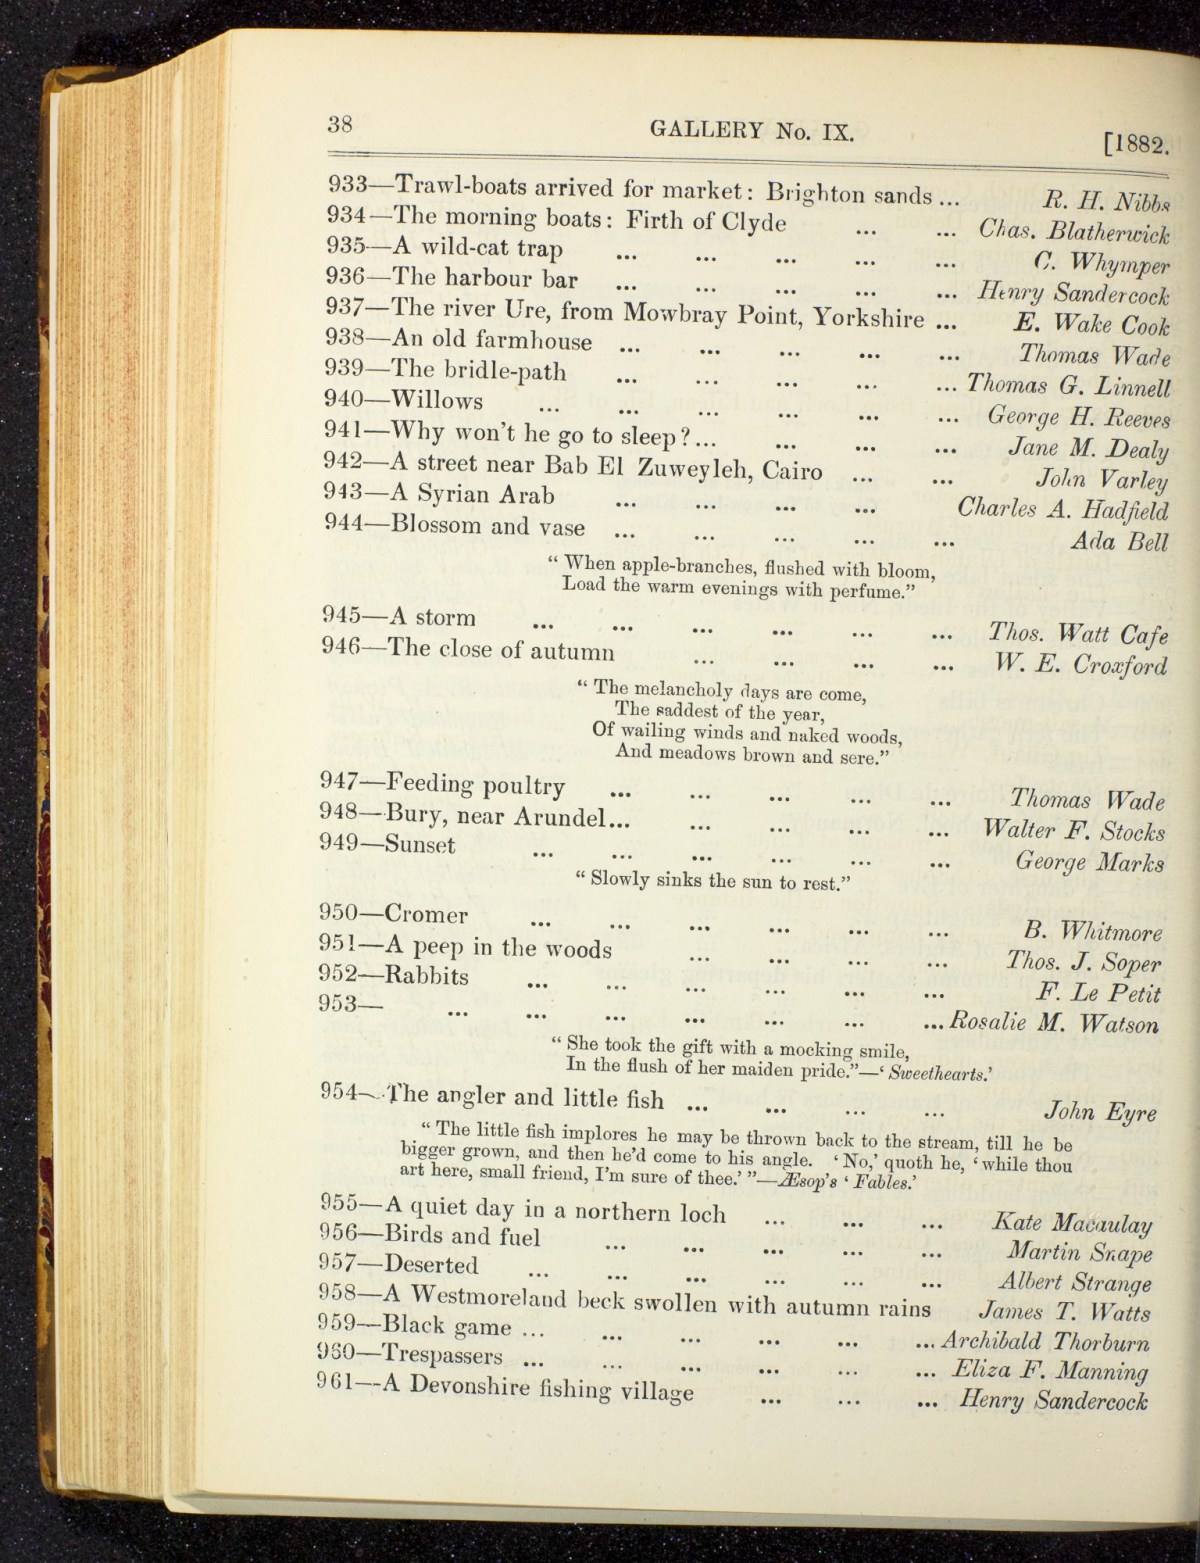 38 GALLERY No. IX. [1882.
933—Trawl-boats arrived for market: Brighton sands ... R. H. Nibbs
934—The morning boats: Firth of Clyde ... ... Chas. Blatherwick
935—A wild-cat trap ... ... ... ... ... C. Whymper
936—The harbour bar ... ... ... ... ... Henry Sandercock
937—The river Ure, from Mowbray Point, Yorkshire ... E. Wake Cook
938—An old farmhouse ... ... ... ... ... Thomas Wade
939—The bridle-path ... ... ... ... ... Thomas G. Linnell
940—Willows ... ... ... ... ... ... George H. Reeves
941—Why won't he go to sleep?... ... ... ... Jane M. Dealy
942—A street near Bab El Zuweyleh, Cairo ... ... John Varley
943—A Syrian Arab ... ... ... ... Charles A. Hadfield
944—Blossom and vase ... ... ... ... ... Ada Bell
“ When apple-branches, flushed with bloom,
Load the warm evenings with perfume.”
945—A storm ... ... ... ... ... ... Thos. Watt Cafe
946—The close of autumn ... ... ... ... W. E. Croxford
“ The melancholy days are come,
The saddest of the year,
Of wailing winds and naked woods,
And meadows brown and sere.”
947—Feeding poultry ... ... ... ... ... Thomas Wade
948—Bury, near Arundel... ... ... ... ... Walter F. Stocks
949—Sunset ... ... ... ... ... ... George Marks
“ Slowly sinks the sun to rest.”
950—Cromer ... ... ... ... ... ... B. Whitmore
951—A peep in the woods ... ... ... ... Thos. J. Soper
952—Rabbits ... ... ... ... ... ... F. Le Petit
953— ... ... ... ... ... ... ... Rosalie M. Watson
“ She took the gift with a mocking smile,
In the flush of her maiden pride.”—‘ Sweethearts.’
954—The angler and little fish ... ... ... ... John Eyre
“ The little fish implores he may be thrown back to the stream, till he be
bigger grown, and then he'd come to his angle. ‘ No,’ quoth he, ‘ while thou
art here, small friend, I'm sure of thee.’ ”—Æsop's ‘ Fables.’
955—A quiet day in a northern loch ... ... ... Kate Macaulay
956—Birds and fuel ... ... ... ... ... Martin Snape
957—Deserted ... ... ... ... ... ... Albert Strange
958—A Westmoreland beck swollen with autumn rains James T. Watts
959—Black game ... ... ... ... ... ... Archibald Thorburn
960—Trespassers ... ... ... ... ... ... Eliza F. Manning
961—A Devonshire fishing village ... ... ... Henry Sandercock